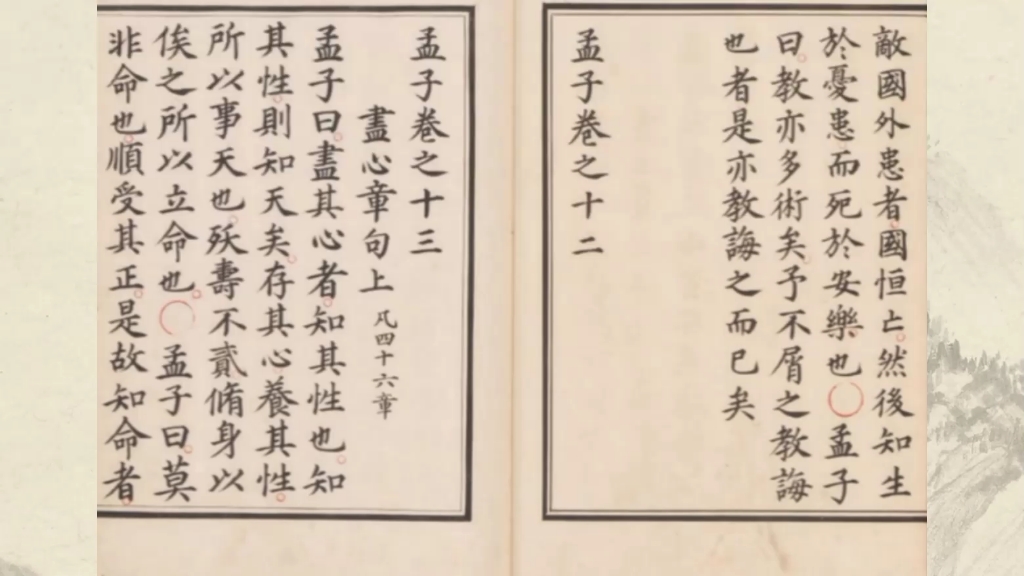 敵國外患者國恒亡然後知生
於憂患而死於安樂也○孟子
曰教亦多術矣予不屑之教誨
也者是亦教誨之而已矣
孟子卷之十二
孟子卷之十三
盡心章句上 凡四十六章
孟子曰盡其心者知其性也知
其性則知天矣存其心養其性
所以事天也殀壽不貳脩身以
俟之所以立命也○孟子曰莫
非命也順受其正是故知命者